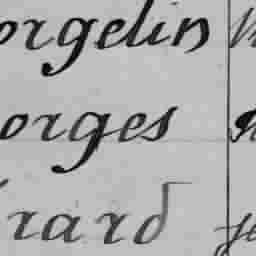 orgelin
orges
rard